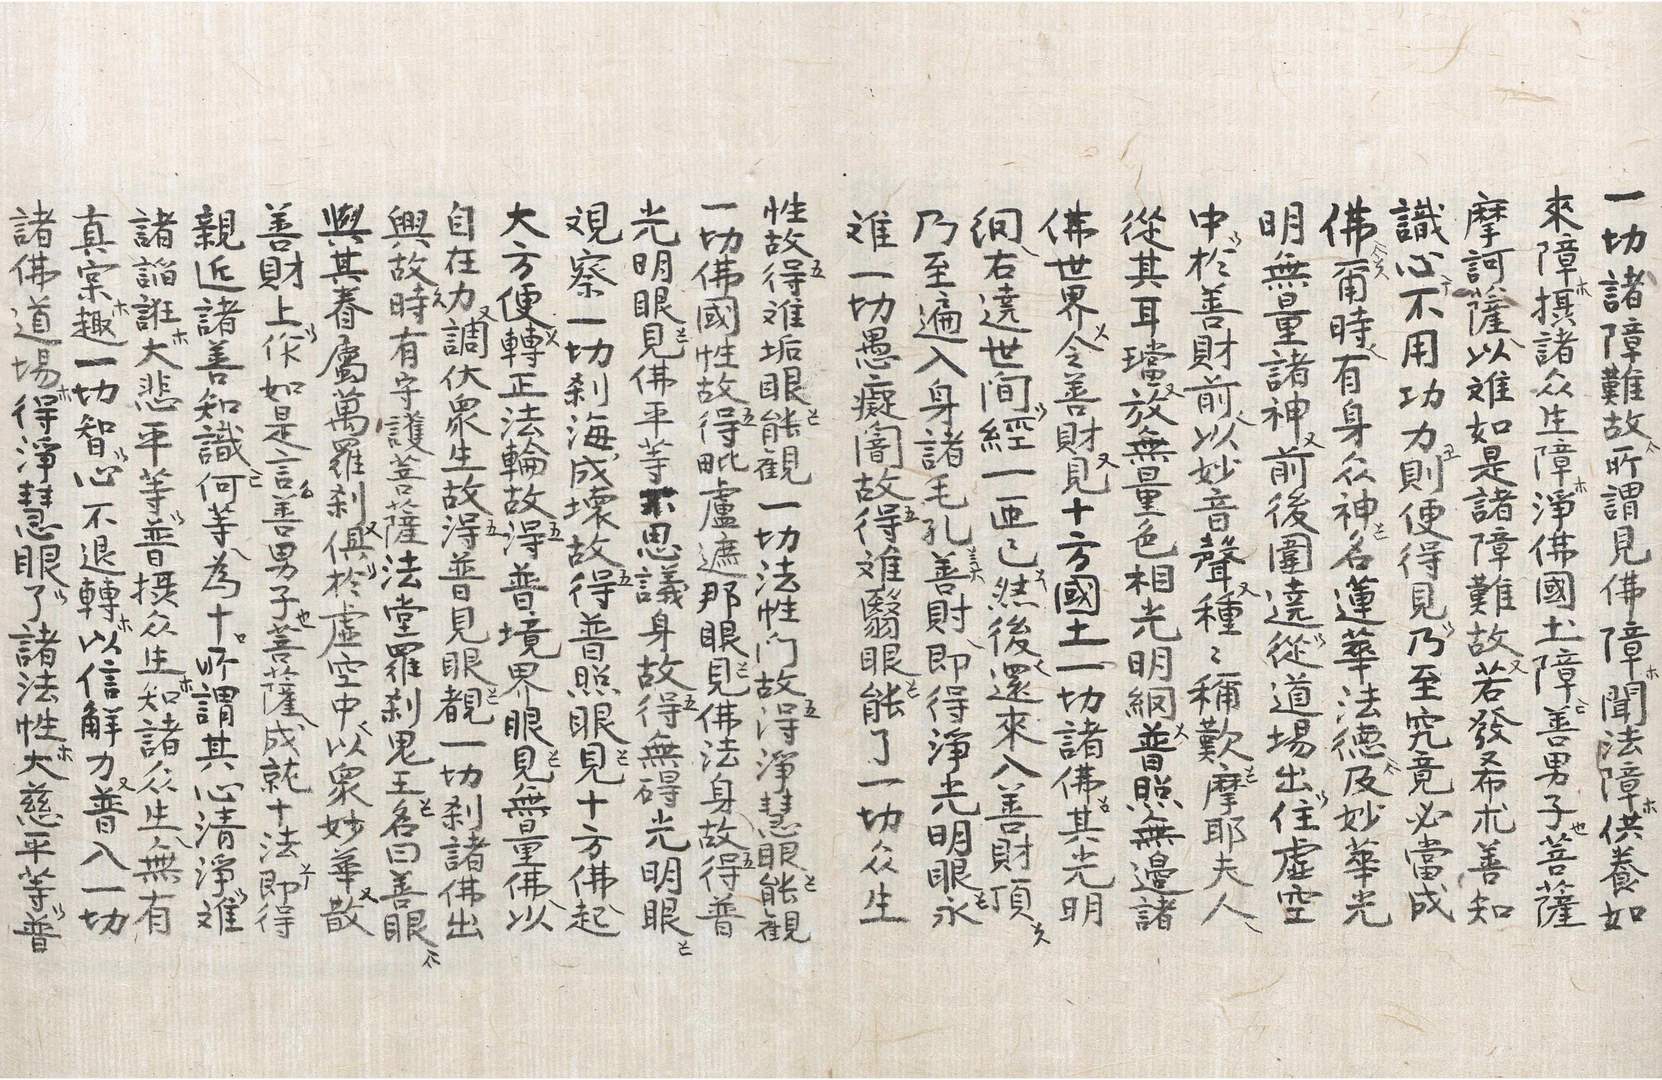 一切諸障難故所謂見佛障聞法障供養如
來障摂諸众生障淨佛國土障善男子菩薩
摩訶薩以难如是諸障難故若發希求善知
識心不用功力則便得見乃至究竟必當成
佛甭時有身众神名蓮華法德及妙華光
明無量諸神前後圍遶從道場出住虛空
中於善財前以妙音聲種〻稱歎摩耶夫人
從其耳璫放無量色相光明網普照無邊諸
佛世界令善財見十方國土一切諸佛其光明
網右遶世间經一匝已然後還來入善財頂
乃至遍入身諸毛孔善財即得淨光明眼永
难一切愚癡闇故得难翳眼能了一切众生
性故得难垢眼能觀一切法性门故得淨慧眼能觀
一切佛國性故得毗盧遮那眼見佛法身故得普
光明眼見佛平等不思議身故得無碍光明眼
覌察一切刹海成壞故得普照眼見十方佛起
大方便轉正法輪故得普境界眼見無量佛以
自在力調伏衆生故得普見眼覩一切刹諸佛出
興故時有守護菩薩法堂羅刹鬼王名曰善眼
與其眷屬萬羅刹俱於虛空中以衆妙華散
善財上作如是言善男子菩薩成就十法即得
親近諸善知識何等為十所謂其心清淨难
諸諂誑大悲平等普摂众生知諸众生無有
真実趣一切智心不退轉以信解力普入一切
諸佛道場得淨慧眼了諸法性大慈平等普